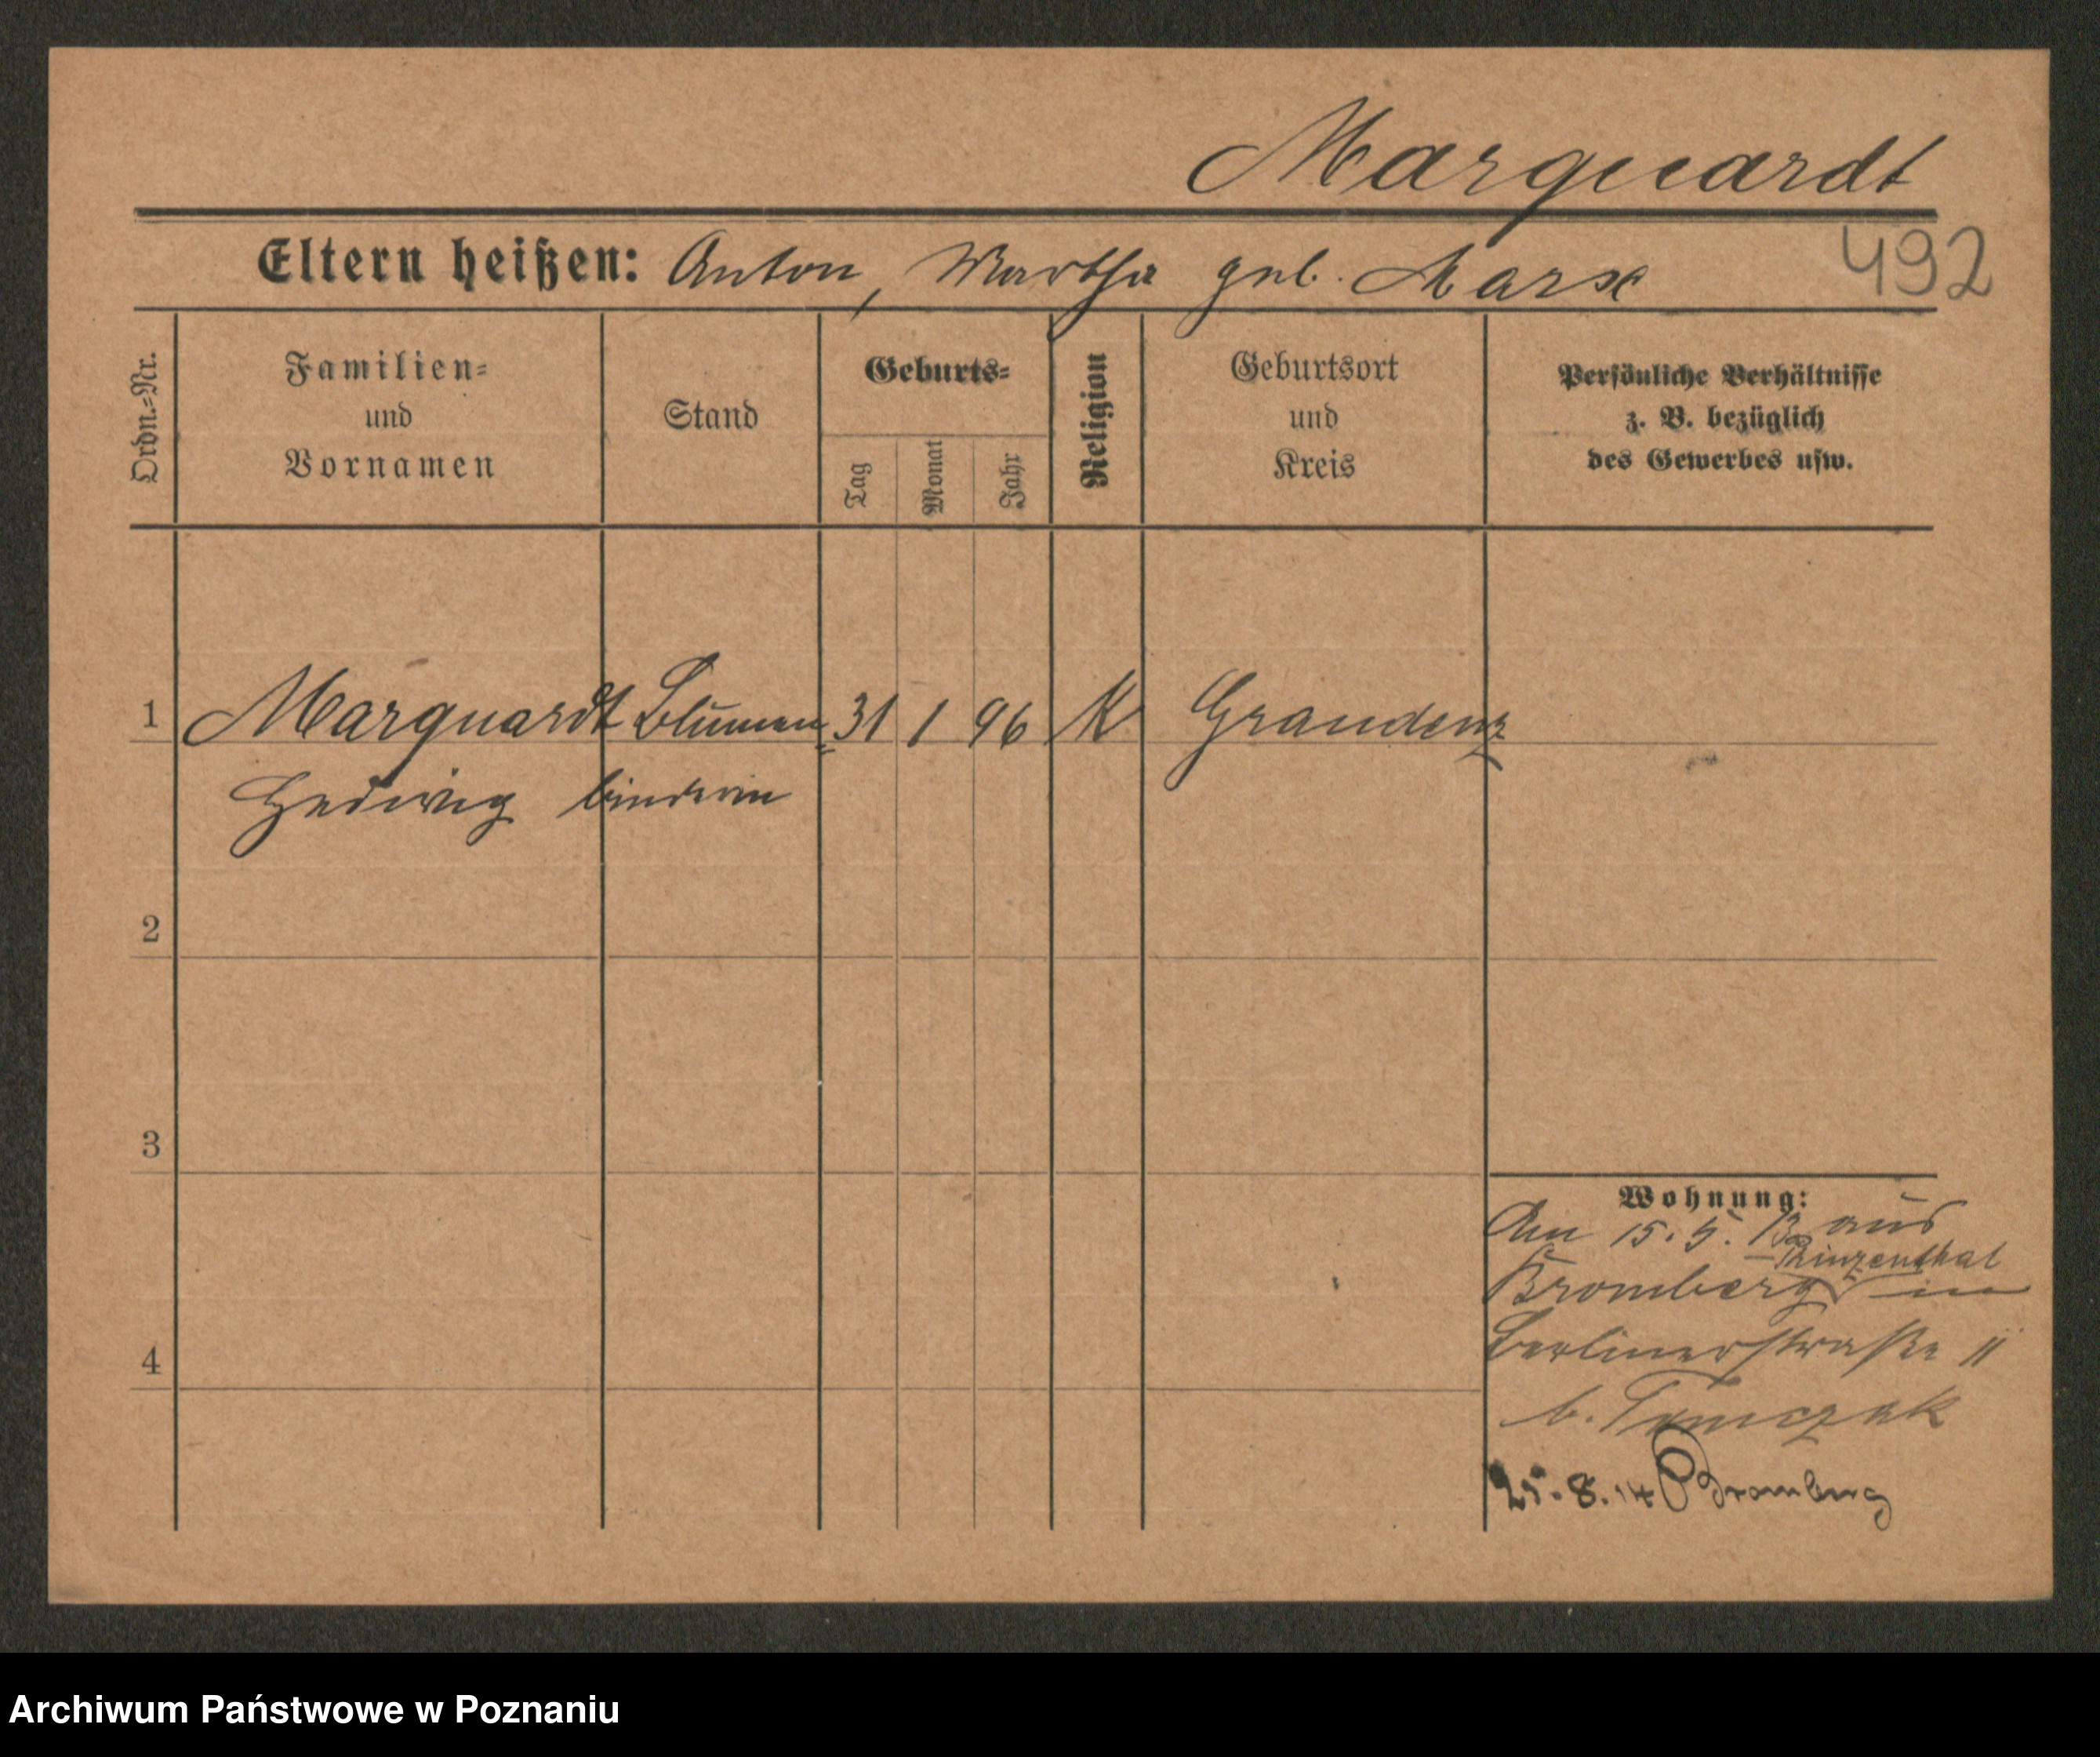 Marquardt
492
Eltern heißen: Anton, Martha geb. Marx
Ordn.-Nr.
Familien-
und
Vornamen
Stand
Geburts-
Tag
Monat
Jahr
Religion
Geburtsort
und
Kreis
Persönliche Verhältnisse
z. B. bezüglich
des Gewerbes usw.
1 Marquardt Blumen= 31 1 96 K Graudenz
Hedwig binderin
2
3
4
Wohnung:
Am 15.5.13 aus
Bromberg - Prinzenthal in
Berlinerstraße 11
b. Tomczak
25.8.14 Bromberg
Archiwum Państwowe w Poznaniu